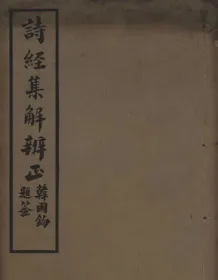 詩經集解辨正
韓國鈞
題簽